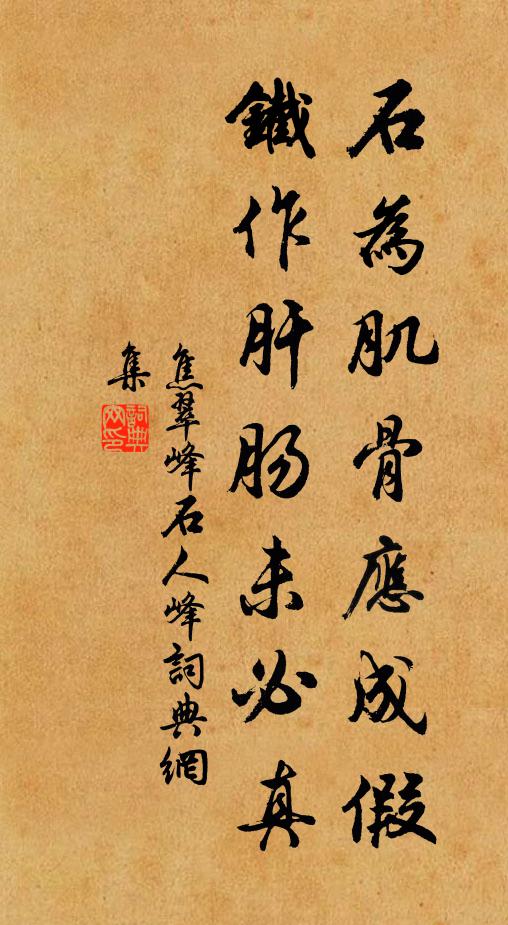 石為肌骨應成假
鐵作肝肠未必真
焦翠峰石人峰詞典網
集
詞典
网印